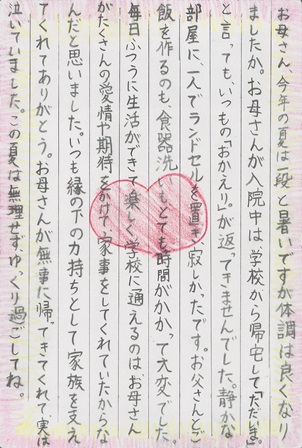 お母さん、今年の夏は一段と暑いですが体調は良くなり
ましたか。お母さんが入院中は学校から帰宅して「ただいま」
と言っても、いつもの「おかえり」が返ってきませんでした。静かな
部屋に、一人でランドセルを置き寂しかったです。お父さんとご
飯を作るのも、食器洗いもとても時間がかかって大変でした
毎日ふつうに生活ができて楽しく学校に通えるのは、お母さん
がたくさんの愛情や期待をかけて家事をしてくれていたからな
んだと思いました。いつも縁の下の力持ちとして家族を支え
てくれてありがとう。お母さんが無事に帰ってきてくれて、実は
泣いていました。この夏は無理せず、ゆっくり過ごしてね。